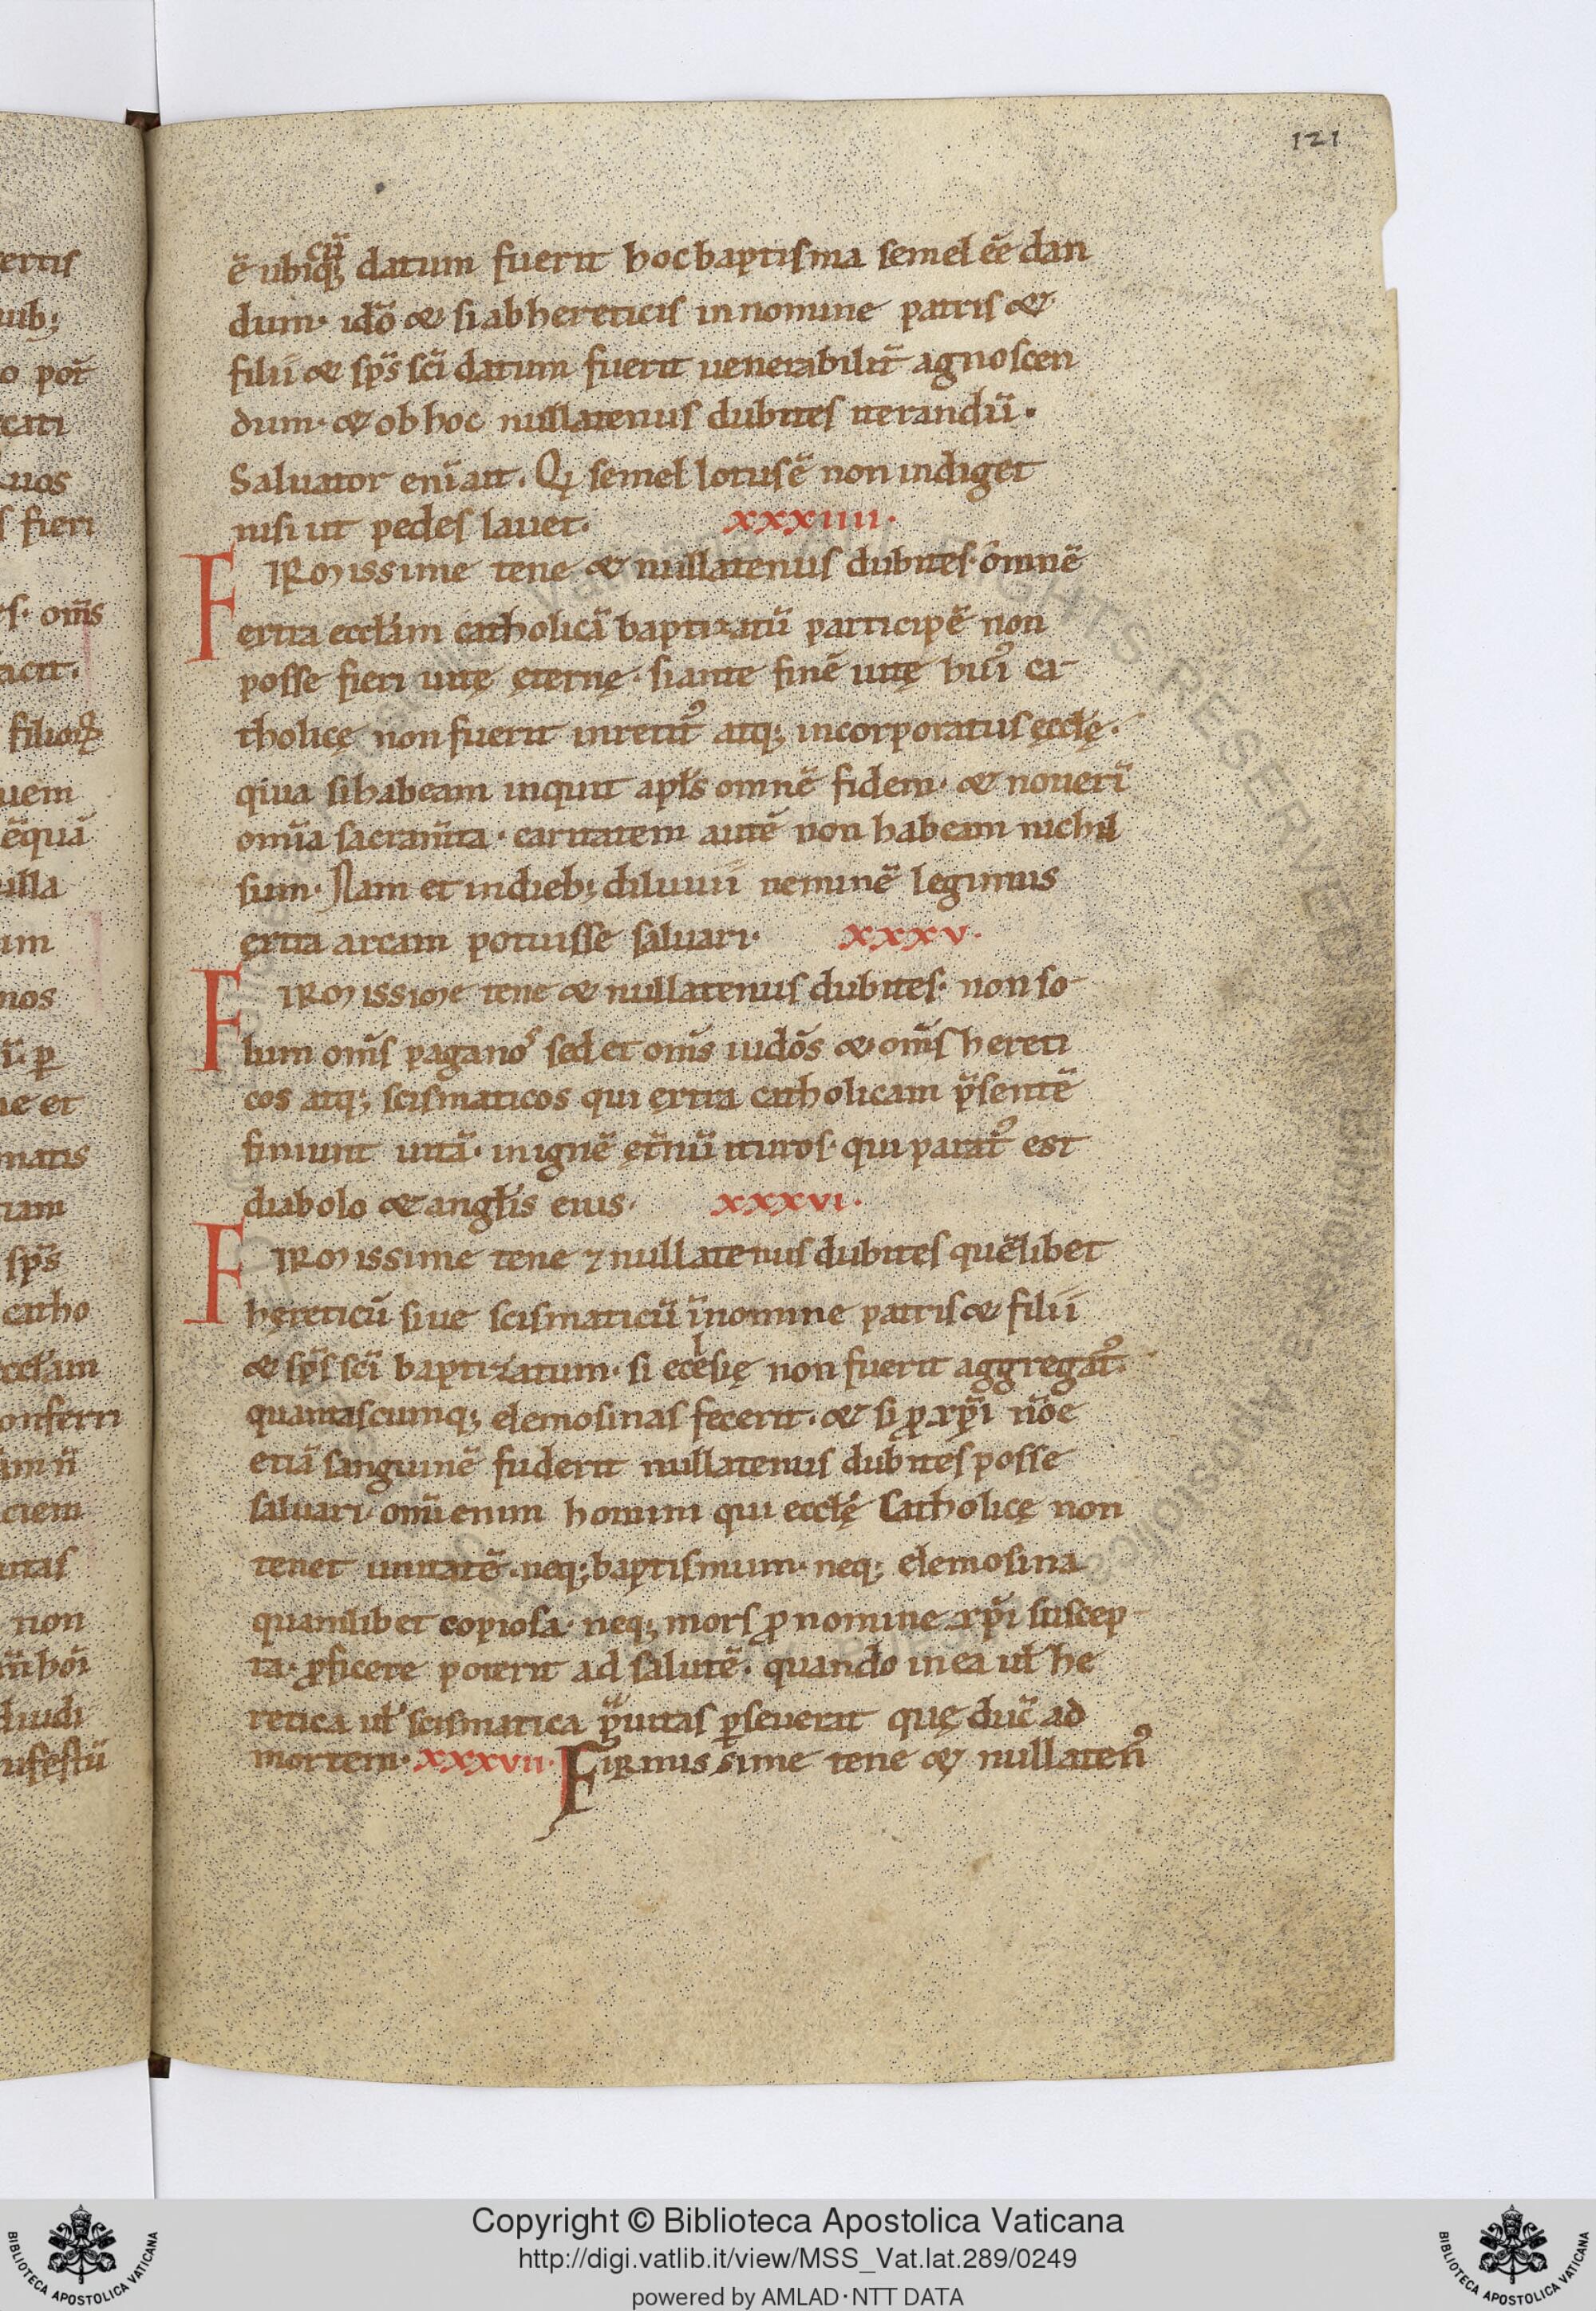 121
ē ubiq; cū datum fuerit hoc baptisma semel eē dan
dum· idō & si ab hereticis in nomine patris &
filii & sp̄s sc̄i datum fuerit uenerabilit̄ agnoscen
dum· & ob hoc nullatenus dubites iterandū.
Saluator eni̅ ait. Qi semel lotus ē non indiget
nisi ut pedes lauet· xxxiiii·
FIRMissime tene & nullatenus dubites· omnē
extra eccl̄am catholicā baptizatū participē non
posse fieri uitę ęternę· si ante finē uitę hui᾽ ca-
tholicę non fuerit in retit̄᾽ atq; incorporatus ęccl̄ę·
q̇a si habeam inquit apl̄s omnē fidem· & nouerī
omīa sacram̄ta· caritatem autē non habeam nichil
sum· Nam et in dieb; diluuii neminē legimus
extra arcam potuisse saluari· xxxv·
FIRMissiMe tene & nullatenus dubites· non so-
lum om̄s paganos sed et om̄s iudōs & om̄s hereti
cos atq; scismaticos qui extra catholicam p̄sentē
finiunt uitā· in ignē ęt̄nū ituros· qui parat᾽ est
diabolo & angl̄is eius· xxxvi·
FIRMissime tene ⁊ nullatenus dubites quēlibet
hęreticū siue scismaticū ī nomine patris & filii
& sp̄s sc̄i baptizatum· si eclesię non fuerit aggregat᾽·
quantascumq; elemosinas fecerit· & si ꝓ xp̄i nōe
etiā sanguinē fuderit nullatenus dubites posse
saluari· om̄i enim homini qui eccl̄ę Catholicę non
tenet unitatē· neq; baptismum· neq; elemosina
quamlibet copiosa· neq; mors ꝓ nomine xp̄i suscep-
ta· ꝓficere poterit ad salutē· quando in ea ul̄ he
retica ul̄ scismatica p̄uitas ꝑseuerat quę duc̄ ad
mortem· xxxvii· FIRmissime tene & nullaten᾽
Copyright © Biblioteca Apostolica Vaticana
http://digi.vatlib.it/view/MSS_Vat.lat.289/0249
powered by AMLAD·NTT DATA
BIBLIOTECA APOSTOLICA VATICANA
BIBLIOTECA APOSTOLICA VATICANA